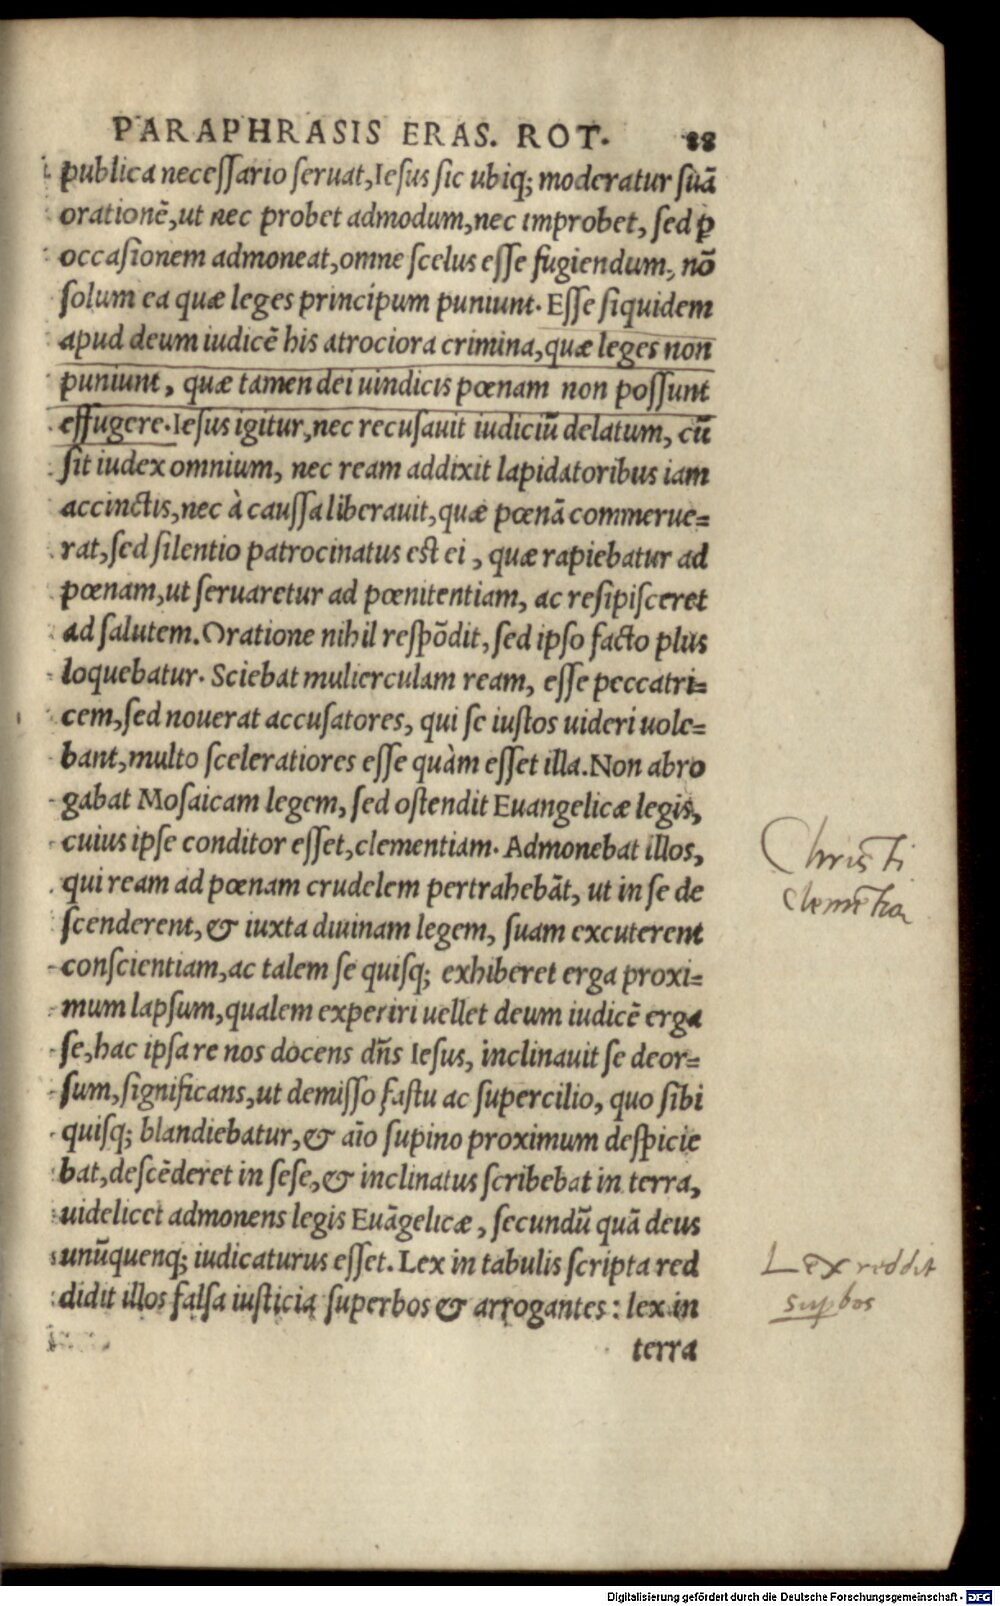 PARAPHRASIS ERAS. ROT. 88
publica necessario seruat, Iesus sic ubiq; moderatur suã
orationẽ, ut nec probet admodum, nec improbet, sed ꝑ
occasionem admoneat, omne scelus esse fugiendum, nõ
solum ea quæ leges principum puniunt. Esse siquidem
apud deum iudicẽ his atrociora crimina, quæ leges non
puniunt, quæ tamen dei uindicis pœnam non possunt
effugere. Iesus igitur, nec recusauit iudiciũ delatum, cũ
sit iudex omnium, nec ream addixit lapidatoribus iam
accinctis, nec à caussa liberauit, quæ pœnã commerue=
rat, sed silentio patrocinatus est ei, quæ rapiebatur ad
pœnam, ut seruaretur ad pœnitentiam, ac resipisceret
ad salutem. Oratione nihil respõdit, sed ipso facto plus
loquebatur. Sciebat mulierculam ream, esse peccatri=
cem, sed nouerat accusatores, qui se iustos uideri uole=
bant, multo sceleratiores esse quàm esset illa. Non abro
gabat Mosaicam legem, sed ostendit Euangelicæ legis,
cuius ipse conditor esset, clementiam. Admonebat illos,
qui ream ad pœnam crudelem pertrahebãt, ut in se de
scenderent, & iuxta diuinam legem, suam excuterent
conscientiam, ac talem se quisq; exhiberet erga proxi=
mum lapsum, qualem experiri uellet deum iudicẽ erga
se, hac ipsa re nos docens dñs Iesus, inclinauit se deor=
sum, significans, ut demisso fastu ac supercilio, quo sibi
quisq; blandiebatur, & aĩo supino proximum despicie
bat, descẽderet in sese, & inclinatus scribebat in terra,
uidelicet admonens legis Euãgelicæ, secundũ quã deus
unũquenq; iudicaturus esset. Lex in tabulis scripta red
didit illos falsa iusticia superbos & arrogantes: lex in
terra
Christi
clemẽtia
Lex reddit
suꝑbos
Digitalisierung gefördert durch die Deutsche Forschungsgemeinschaft - DFG